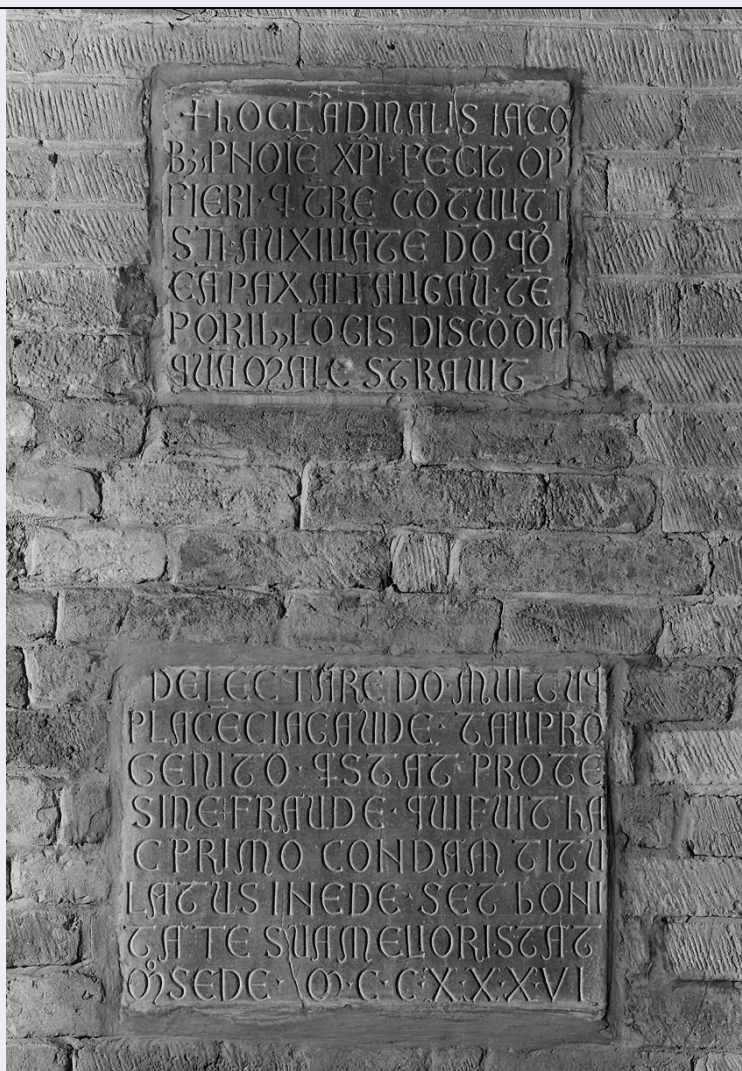 + hOC CARDINALIS IACO
B; P NOIE XPI FECIT OP9
FIERI · q̄ TRE COTULIT I
STI · AUXILIATE DO qD̄
EA PAX ALTA LIGAU · TE
PORIB; LOCIS DISCODIA
qUA MALE STRAUIT
DELECTARE DO · MULTU q
PLACECIA GAUDE · TALI PRO
GENITO · q STAT PRO TE
SINE FRAUDE · qUI FUIT hA
C PRIMO CONDAM TITU
LATUS IN EDE · SET bONI
TATE SUA MELIORI STAT
M̊ SEDE · M · C · C · X · X · X · VI